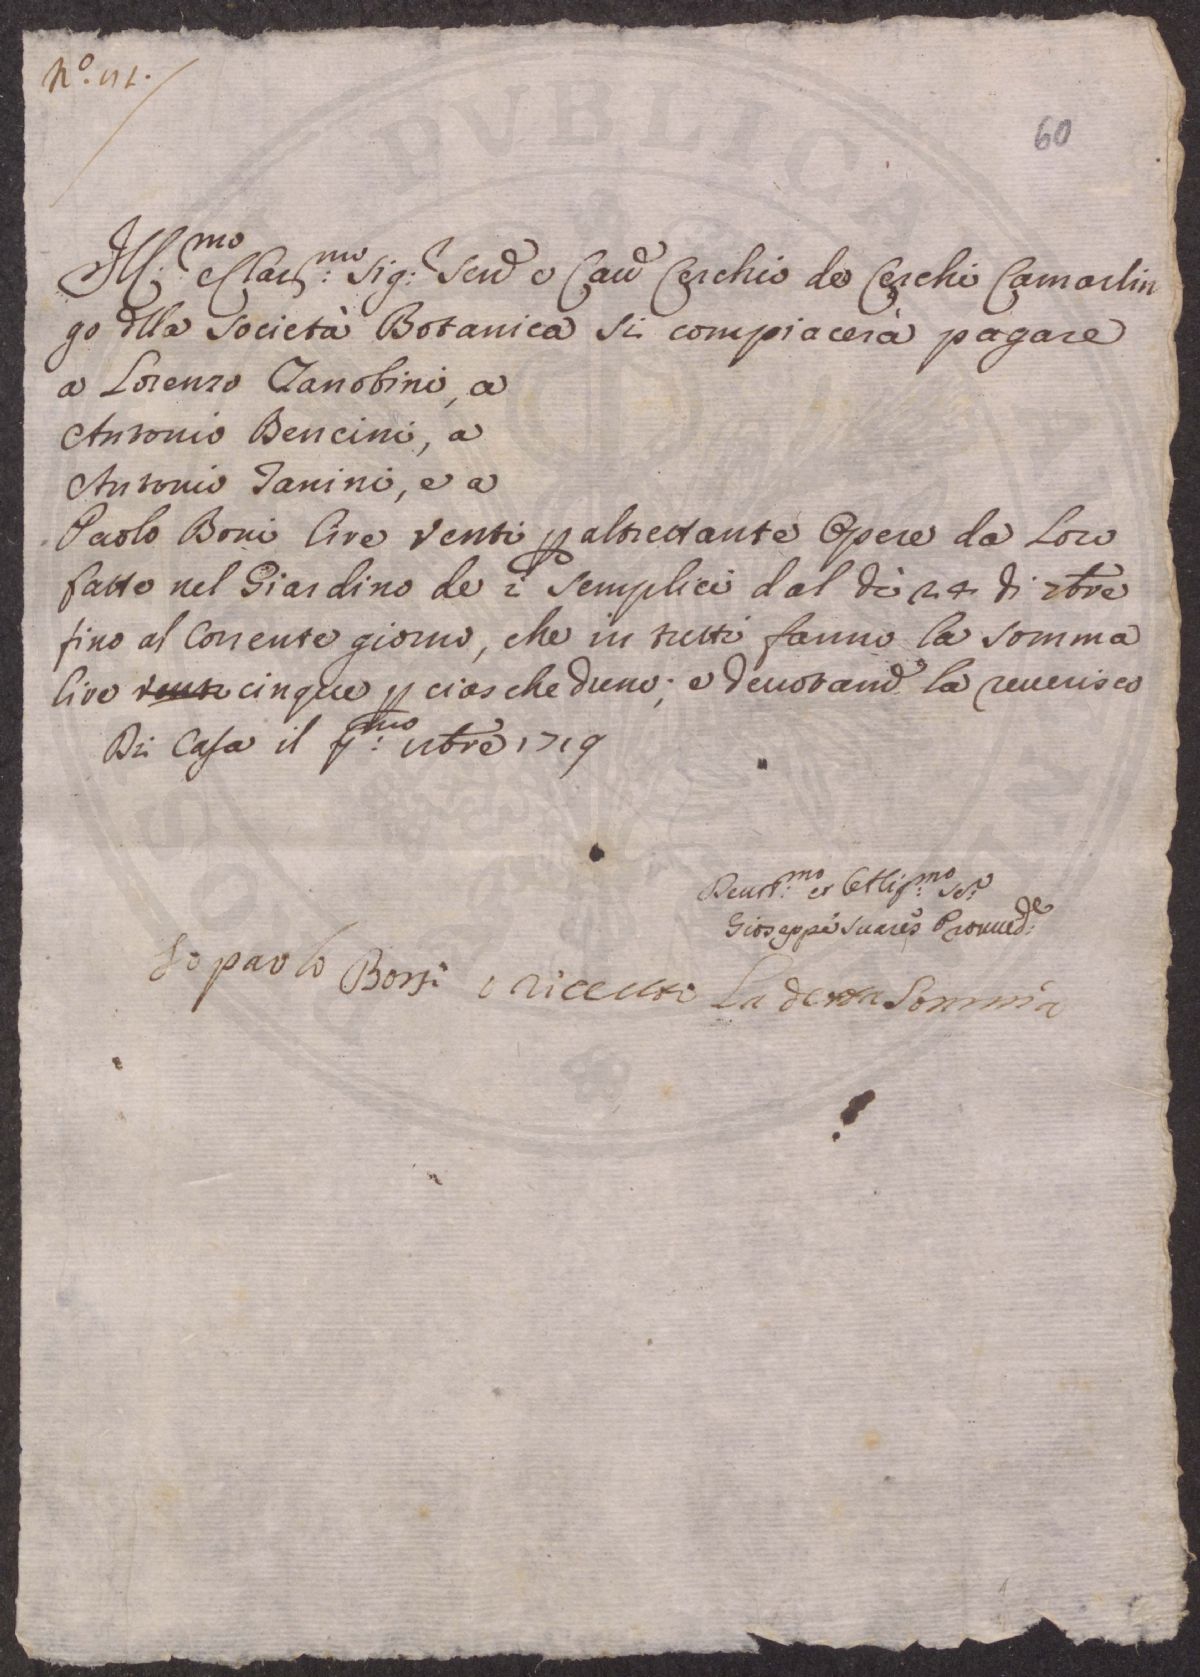 N.º 41.
60
Ill:mo e Clar:mo Sig:r Sen:e e Cav:e Cerchio de Cerchi Camarlin
go dlla Società Botanica si compiacerà pagare
a Lorenzo Zanobini, a
Antonio Bencini, a
Antonio Ianini, e a
Paolo Boni lire venti p altrettante Opere da Loro
fatte nel Giardino de i Semplici dal dì 24 di 7bre
fino al corrente giorno, che in tutti fanno la somma
lire venti cinque p ciascheduno; e devotamd.e la reverisco
Di Casa il p:mo 9bre 1719
Devot:mo et Obblig:mo Se:e
Gioseppe Suares Proved:e
Io paolo Borsi o riceuto La detta Somma